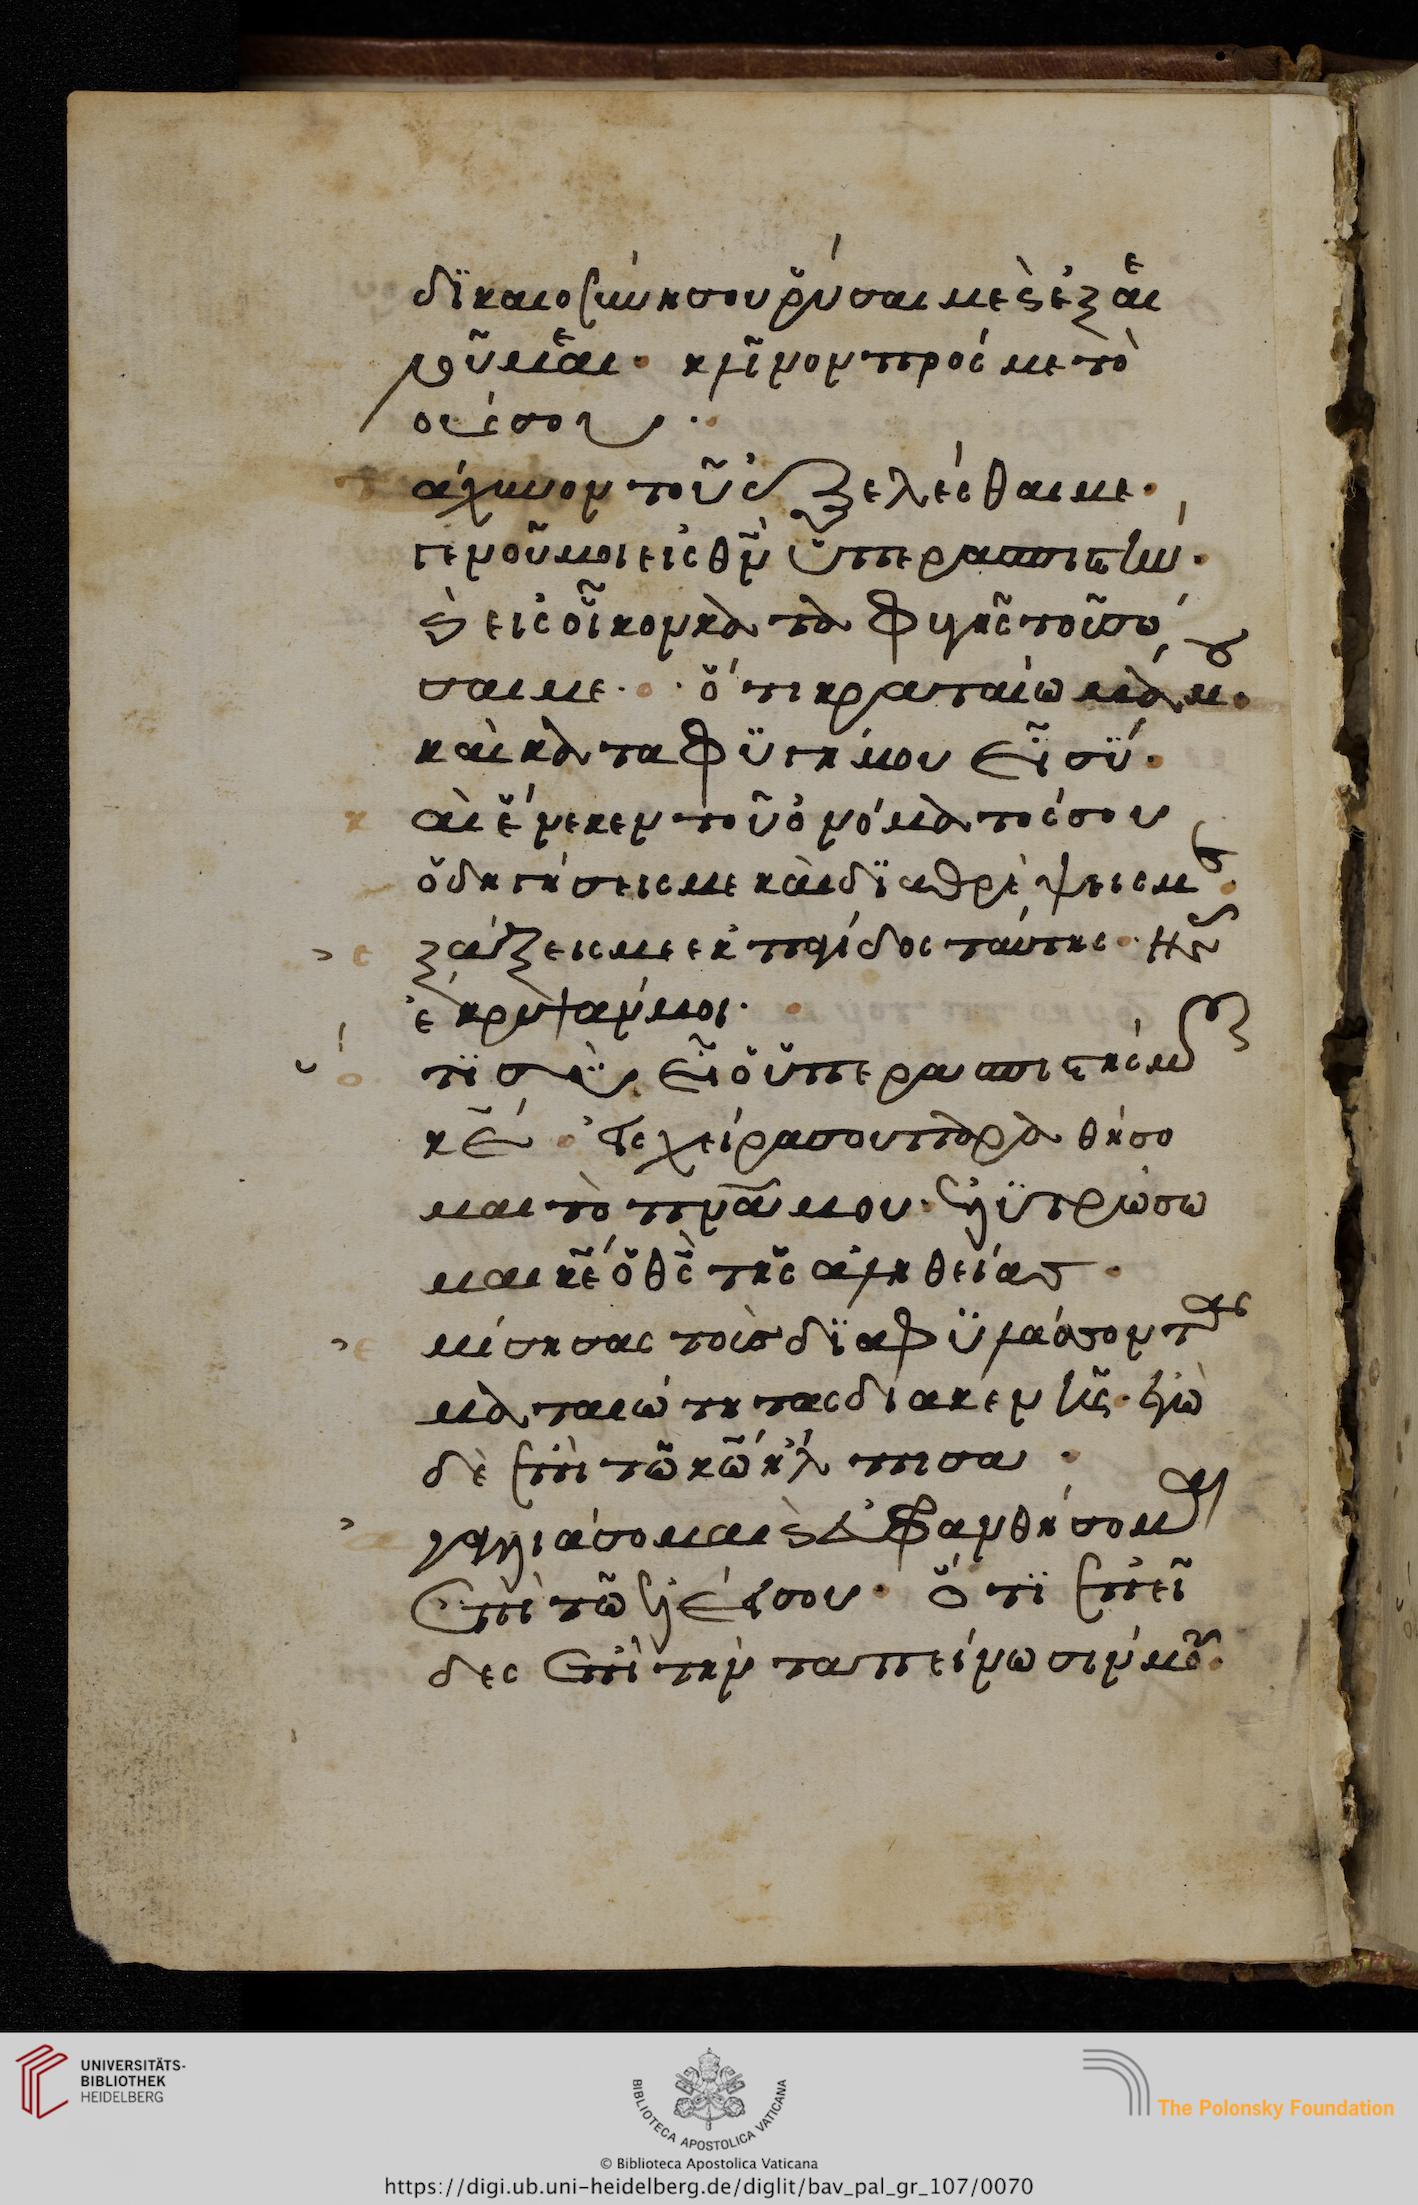 δϊκαιοσύνη σου ῥύσαι με ϛ ἐξελοῦ
με. κλῖνον πρός με τὸ
οὖς σου.
τάχυνον τοῦ ἐξελέσθαι με.
γενοῦ μοι εἰς θν ὑπερασπιστὴν.
ϛ εἰς οἶκον καταφυγῆς τοῦ σῶ
σαι με. ὅτι κραταίωμά μου.
καὶ καταφϋγή μου εἶ σϋ.
καὶ ἕνεκεν τοῦ ὀνόματός σου
ὁδηγήσεις με καὶ δϊαθρέψεις με.
ἐξάξεις με ἐκ παγίδος ταύτης ἧς
ἔκρυψάν μοι.
ὅτϊ σὺ εἶ ὁ ὑπερασπιστής μου
κε. εἰς χεῖρας σου παραθήσο
μαι τὸ πνα μου. ἐλϋτρώσω
με κε ὁ θς τῆς ἀληθείας.
ἐμίσησας τοὺς δϊαφϋλάσσοντας
ματαιότητας διακενῆς. ἐγὼ
δὲ ἐπὶ τῷ κω ἤλπισα.
ἀγαλλιάσομαι ϛ εὐφρανθήσομαι
ἐπὶ τῷ ἐλέει σου. ὅτϊ ἐπεῖ
δες ἐπὶ τὴν ταπείνωσίν μου.
UNIVERSITÄTS-
BIBLIOTHEK
HEIDELBERG
BIBLIOTECA APOSTOLICA VATICANA
The Polonsky Foundation
© Biblioteca Apostolica Vaticana
https://digi.ub.uni-heidelberg.de/diglit/bav_pal_gr_107/0070